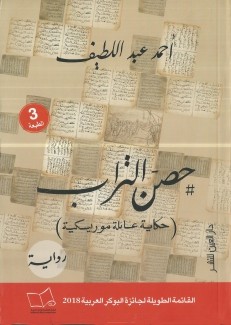 أحمد عبد اللطيف
3
الطبعة
حصن التراب
#
(حكاية عائلة موريسكية)
رواية
دار العين للنشر
القائمة الطويلة لجائزة البوكر العربية 2018